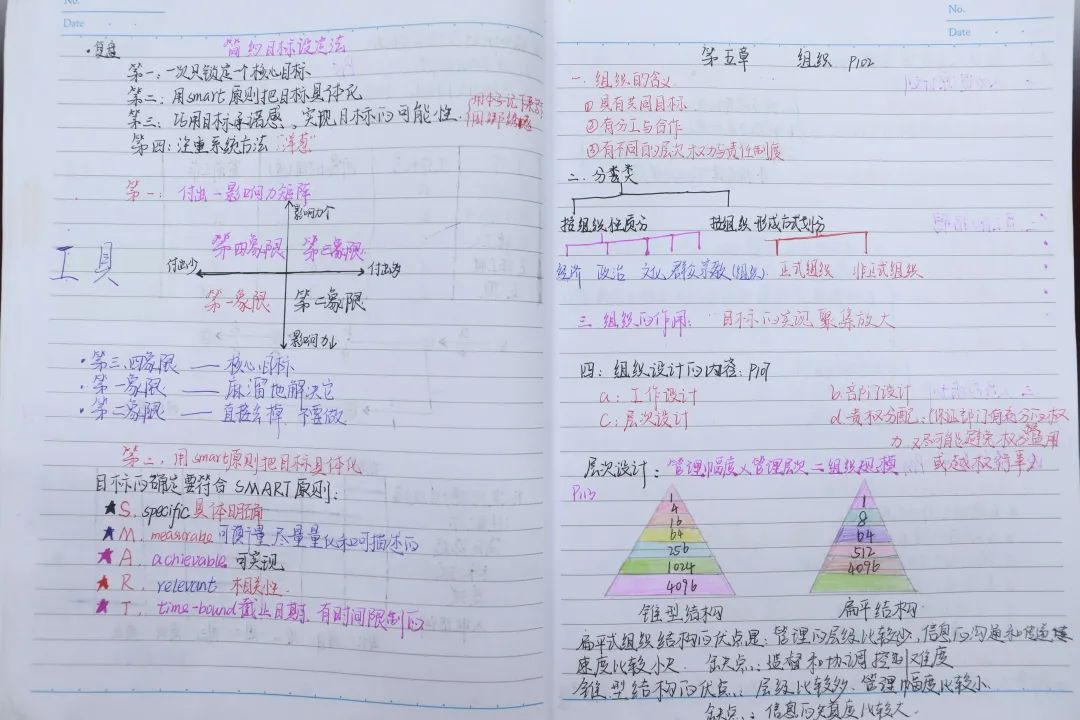 No.
Date
·复盘 简约目标设定法
第一:一次只锁定一个核心目标
第二:用smart原则把目标具体化
第三:巧用目标承诺感、实现目标的可能性.
(用本子记下来的
第四:注重系统方法 "洋葱"
第一: 付出-影响力矩阵
影响力个
第四象限 第三象限
工具
付出少 付出多
第一象限 第二象限
影响力小
·第三、四象限 —— 核心目标
·第一象限 —— 麻溜地解决它
·第二象限 —— 直接去掉、不要做
第二、用smart原则把目标具体化
目标的确定要符合SMART原则:
★S. specific具体明确
★M. measurabe可衡量 尽量量化和可描述的
★A. achievable 可实现
★R. relevant 相关性.
★T. time-bound截止日期、有时间限制的
No.
Date
第五章 组织 P102
一.组织的含义
①具有共同目标
②有分工与合作
③有不同的层次权力与责任制度
二.分类类
按组织性质分 按组织形成方式划分
经济 政治 文化 群众 宗教(组织) 正式组织 非正式组织
三.组织的作用: 目标的实现 聚集放大
四:组织设计的内容:P107
a:工作设计 b.部门设计
c:层次设计 d.责权分配:(保证部门有充分的权
力又尽可能避免权力滥用
层次设计:管理幅度×管理层次=组织规模 或越权行事)
P113
1 1
4 8
16 64
64 512
256 4096
1024
4096
锥型结构 扁平结构
扁平式组织结构的优点是:管理的层级比较少,信息的沟通和传递
速度比较小尺. 缺点:监督和协调控制难度
锥型结构的优点:层级比较多.管理幅度比较小
缺点:信息的失真度比较大.